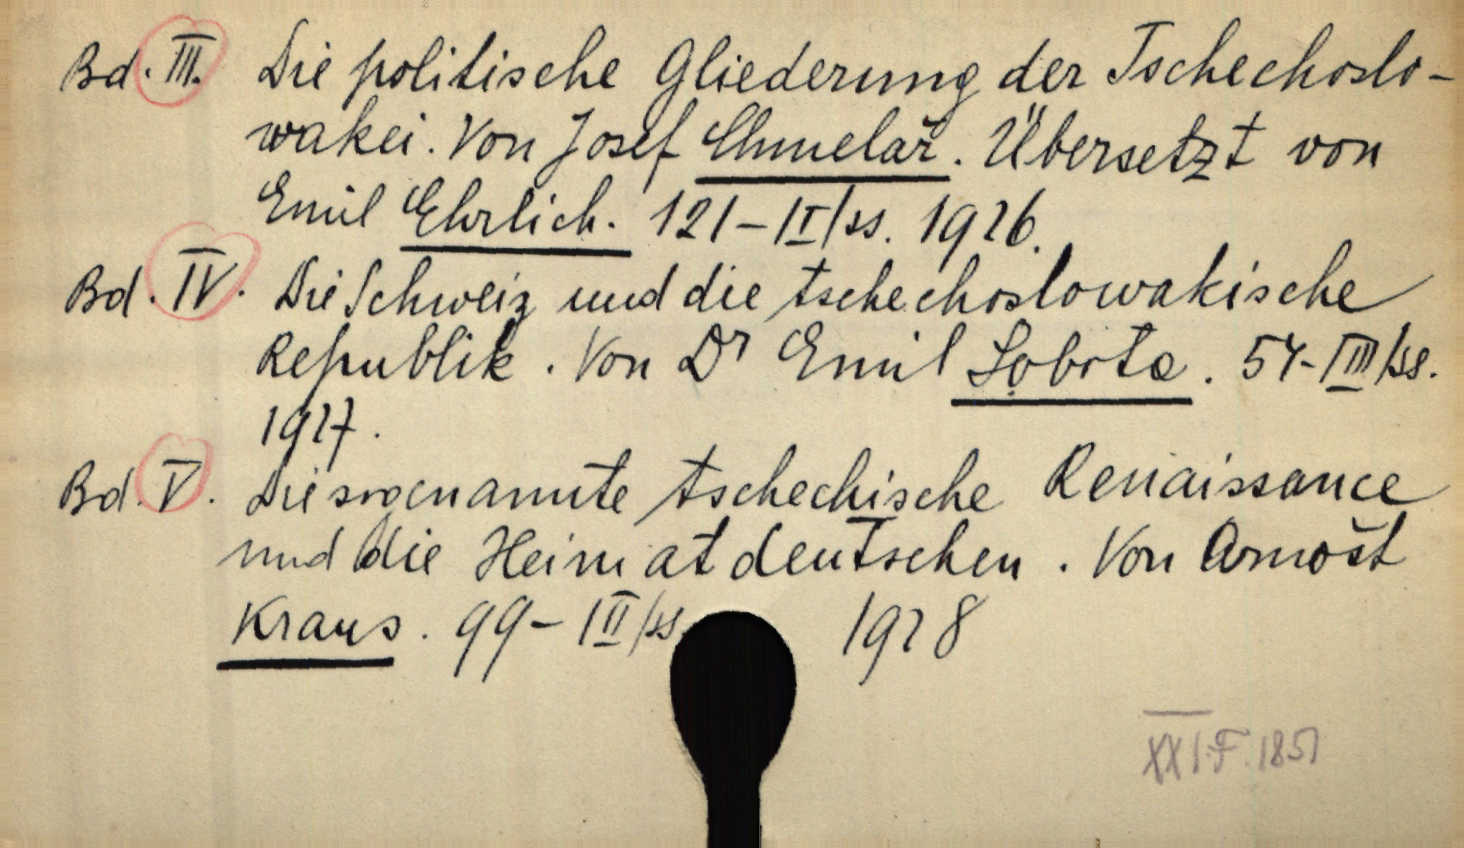 Bd. III. Die politische Gliederung der Tschechoslo-
wakei. Von Josef Chmelař. Übersetzt von
Emil Ehrlich. 121-II/ss. 1926.
Bd. IV. Die Schweiz und die tschechoslowakische
Republik. Von Dr Emil Sobota. 54-III/ss.
1927.
Bd. V. Die sogenannte tschechische Renaissance
und die Heimatdeutschen. Von Arnošt
Kraus. 99-III/ss 1928
XXI.F.1851